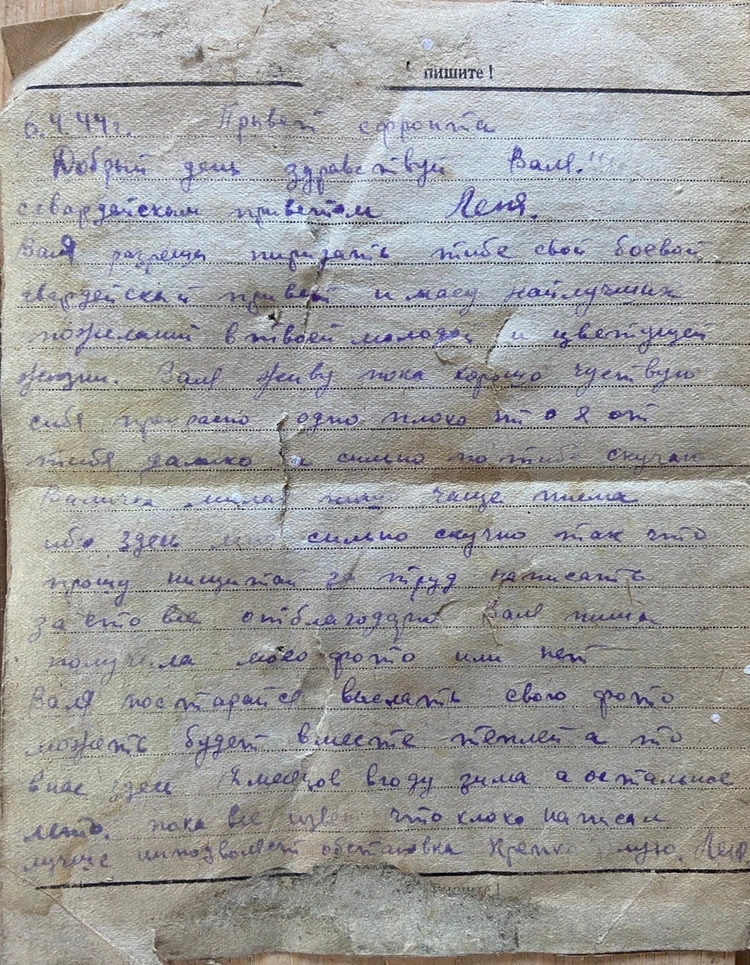 пишите!
6.4.44г. Привет сфронта
Добрый день здравствуй Валя.!!!
сгвардейским приветом Леня.
Валя разреши пиридать тибе свой боевой
гвардейский привет и масу найлучших
пожеланий втвоей молодой и цветущей
жизни. Валя живу пока хорошо чуствую
сибя прекрасно одно плохо што я от
тибя далико и сильно по тибе скучаю
Валичка милая пиши чаще писма
ибо здесь мне сильно скучно так что
прошу нищитай за труд написать
за что все отблагодарю Валя пиши
получила моею фото или нет
Валя постарайся выслать свою фото
можеть будет вместе теплей а то
внас здесь 12 месяцов вгоду зима а остальное
лето. пока все извени что плохо написал
лучше нипозволяет обстановка Крепко Леня
пишите!